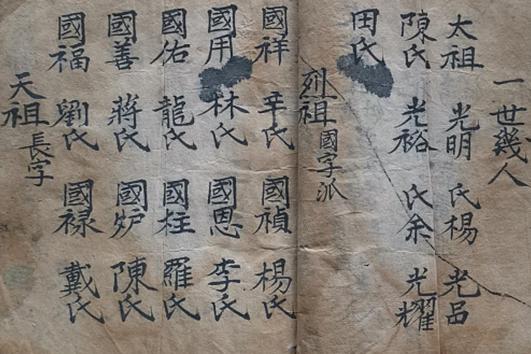 一世幾人
太祖 光明 氏楊 光呂
陳氏 光裕 氏余 光耀
田氏
烈祖 國字派
國祥 辛氏 國禎 楊氏
國用 林氏 國恩 李氏
國佑 龍氏 國柱 羅氏
國善 蔣氏 國炉 陳氏
國福 劉氏 國禄 戴氏
天祖 長字